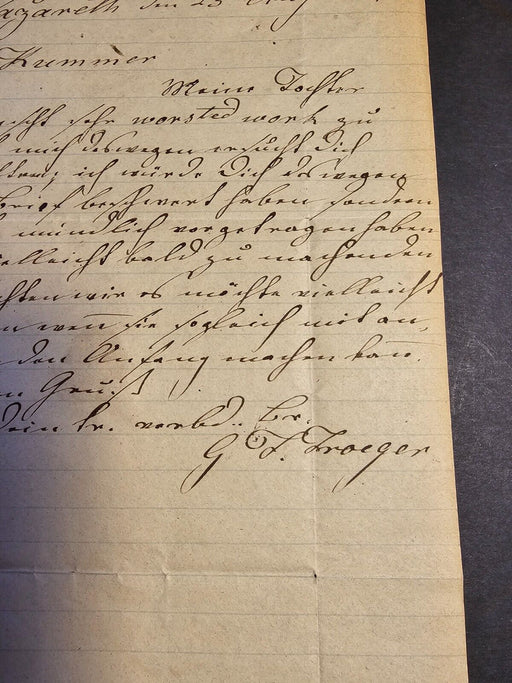 azareth den 25 Aug
Kummer
Meine Tochter
sehr worsted work zu
mich deswegen ersucht Dich
ich würde Dich deswegen
Brief beschwert haben sondern
mündlich vorgetragen haben
vielleicht bald zu machenden
wir es möchte vielleicht
wen̄ sie sogleich mit an,
den Anfang machen kan̄.
Gruß
Dein tr. verbd. Br.
G F. Troeger